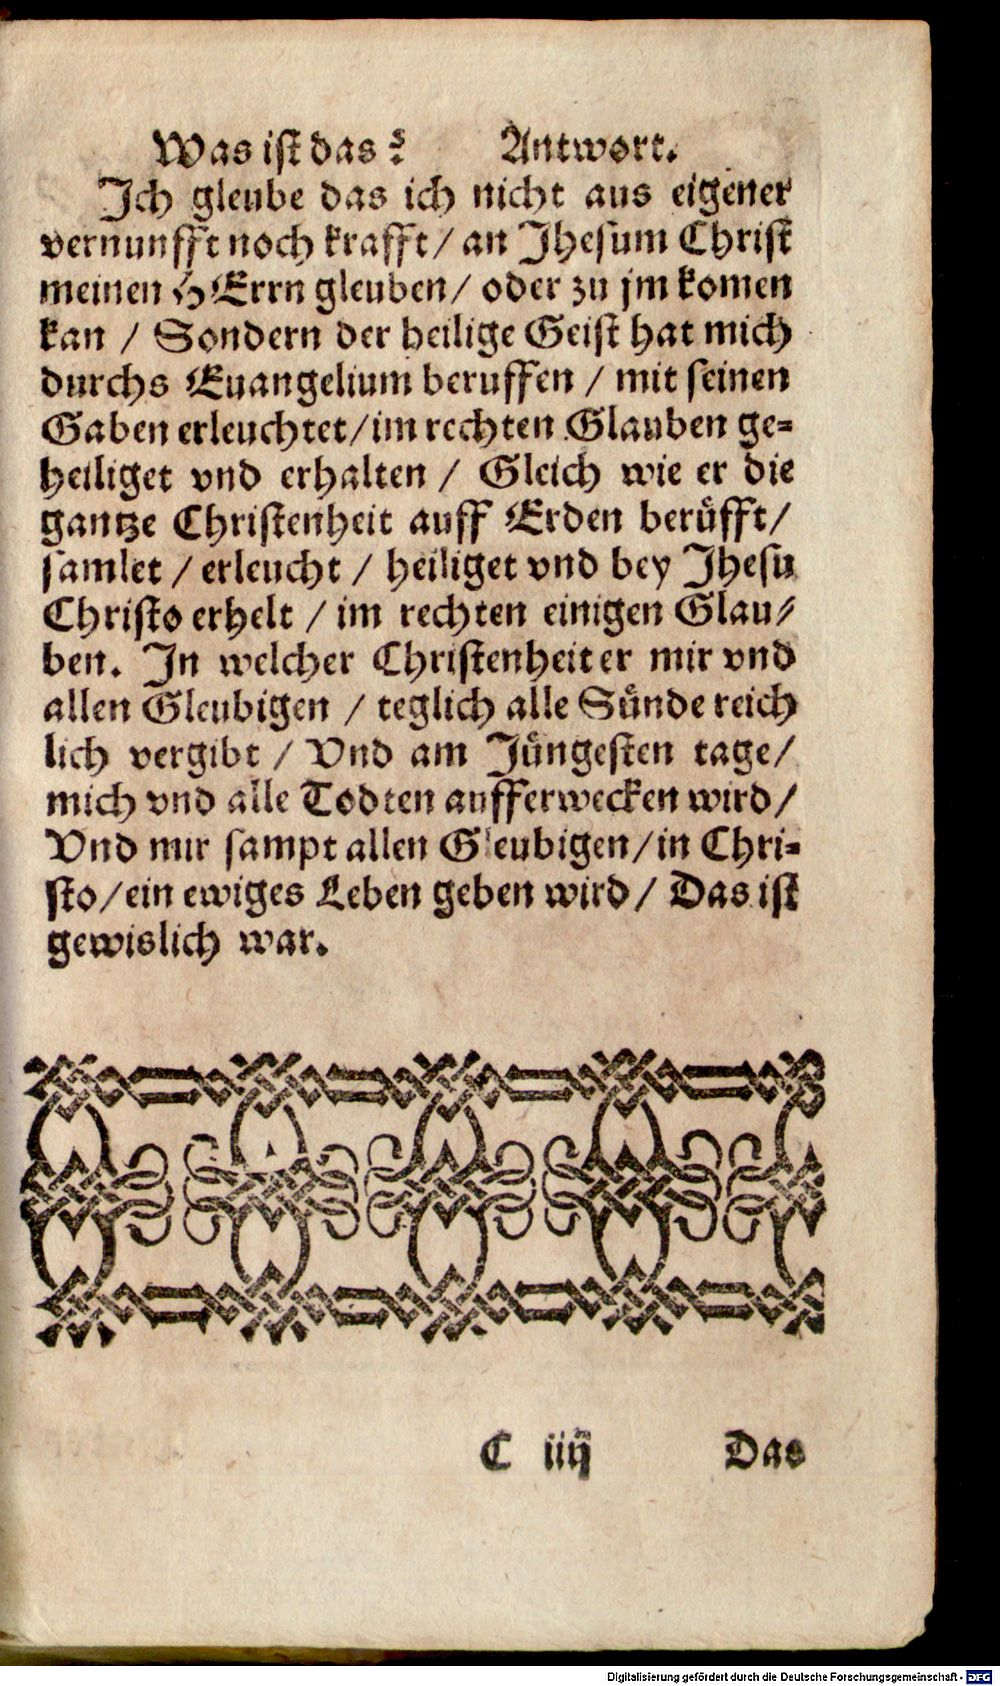 Was ist das? Antwort.
Ich gleube das ich nicht aus eigener
vernunfft noch krafft/ an Jhesum Christ
meinen HErrn gleuben/ oder zu jm komen
kan / Sondern der heilige Geist hat mich
durchs Euangelium beruffen / mit seinen
Gaben erleuchtet/im rechten Glauben ge-
heiliget vnd erhalten / Gleich wie er die
gantze Christenheit auff Erden berüfft/
samlet / erleucht / heiliget vnd bey Jhesu
Christo erhelt / im rechten einigen Glau-
ben. In welcher Christenheit er mir vnd
allen Gleubigen / teglich alle Sünde reich
lich vergibt / Vnd am Jüngesten tage/
mich vnd alle Todten aufferwecken wird/
Vnd mir sampt allen Gleubigen/in Chri-
sto/ein ewiges Leben geben wird/ Das ist
gewislich war.
C iiij Das
Digitalisierung gefördert durch die Deutsche Forschungsgemeinschaft - DFG